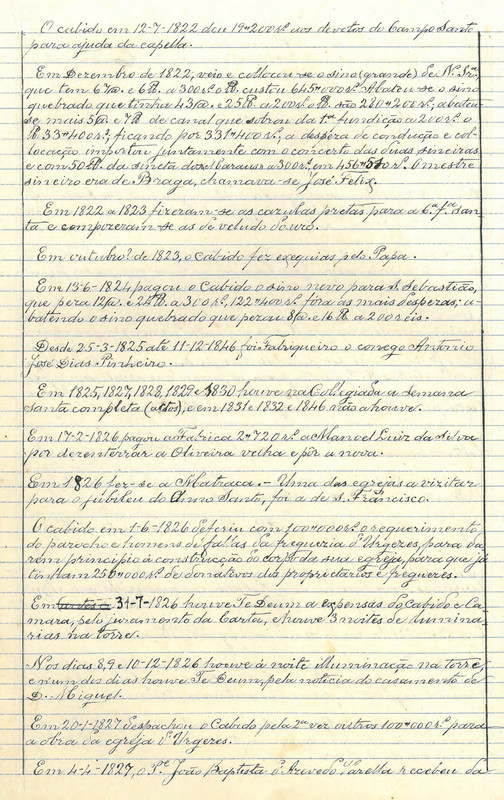 O cabido em 12-7-1822 deu 19"200rs. aos devotos do Campo Santo
para ajuda da capella.
Em Dezembro de 1822, veio e collocou-se o sino (grande) de N. Srª,
que tem 67@. e 6lb. a 300rs. o lb. custou 645"000rs. Abateu-se o sino
quebrado que tinha 43@. e 25lb. a 200rs. o lb. são 280"200rs., abateu-
se mais 5@ e 7lb. de canal que sobrou da 1ª fundição a 200rs. o
lb. 33"400rs., ficando por 331"400rs., a despeza de condução e col-
locação importou juntamente com o concerto das duas sineiras
e com 50lb. da
a 300rs. em O mestre
sineiro era de Braga, chamava-se José Felix.
Em 1822 a 1823 fizeram-se as cazulas pretas para a 6ª fª san-
ta e compozeram-se as de veludo d'ouro.
Em outubrº de 1823, o Cabido fez exequias pelo Papa.
Em 13-6-1824 pagou o Cabido o sino novo para S. Sebastião,
que peza 12@. e 24lb. a 300rs., 122"400rs. fóra as mais despezas; a-
batendo o sino quebrado que pezou 8@. e 16lb. a 200 réis.
Desde 25-3-1825 até 11-12-1846 foi Fabriqueiro o conego Antonio
José Dias Pinheiro.
Em 1825, 1827, 1828, 1829 e 1830 houve na Collegiada a semana
santa completa (actos), e em 1831 e 1832 e 1846 não a houve.
Em 17-2-1826 pagou a Fabrica 2"720rs. a Manoel Luiz da Silva
por dezenterrar a Oliveira velha e pôr a nova.
Em 1826 fez-se a Matraca. - Uma das egrejas a vizitar
para o jubileu do Anno Santo, foi a de S. Francisco.
O cabido em 1-6-1826 deferiu com 100"000rs. o requerimento
do parocho e homens de fallas da freguezia d'Urgezes, para da-
rem principio á construcção do corpo da sua egreja, para que já
tinham 250"000rs. de donativos dos proprietarios e freguezes.
Em 31-7-1826 houve Te Deum a expensas do Cabido e Ca-
mara, pelo juramento da Carta, e houve 3 noites de illumina-
rias na torre.
Nos dias 8, 9 e 10-12-1826 houve á noite illuminação na torre,
e n'um dos dias houve Te Deum, pela noticia do casamento de
D. Miguel.
Em 20-1-1827 despachou o Cabido pela 2ª vez outros 100"000rs. para
a obra da egreja d'Urgezes.
Em 4-4-1827, o Pe. João Baptista d'Azevedo Varella recebeu da